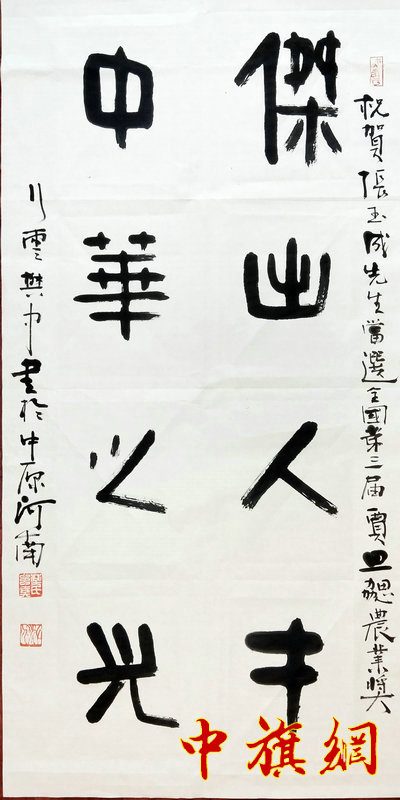 祝賀張玉成先生當選全國第三届賈思勰農業奬
傑出人才
中華之光
行雲樊中書於中原河南
中旗網